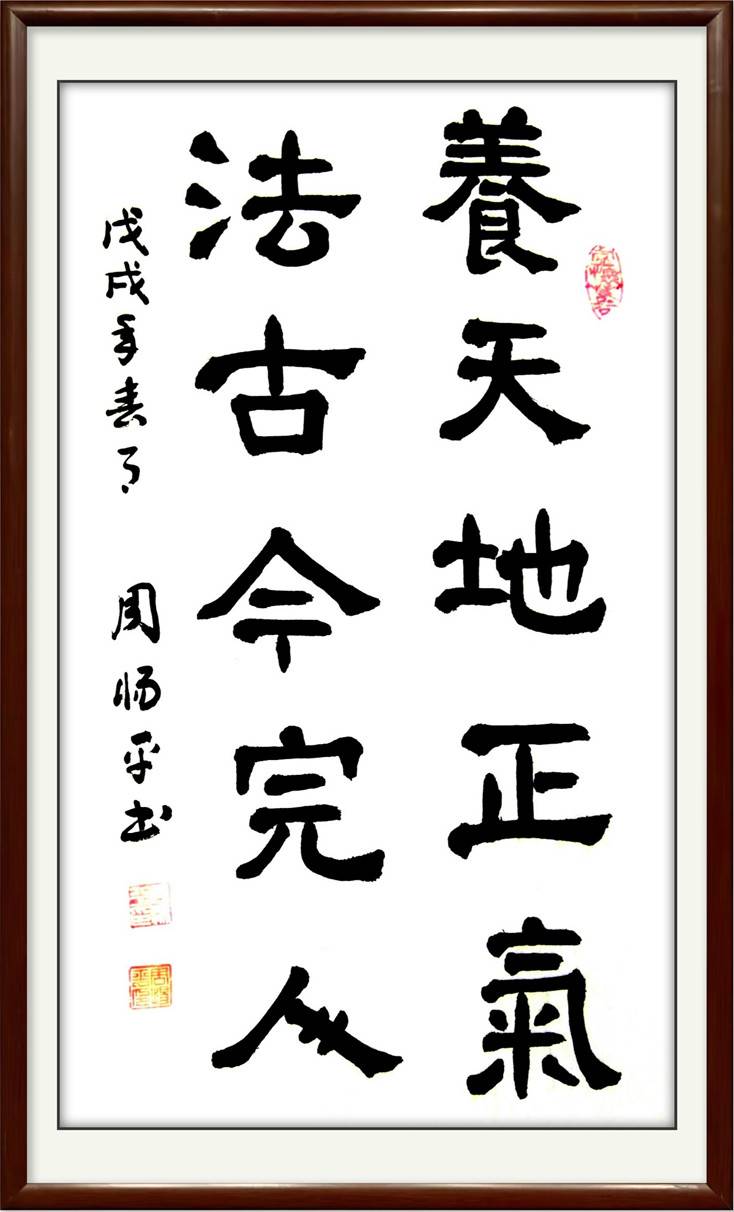 養天地正氣
法古今完人
戊戌年春月 周平书